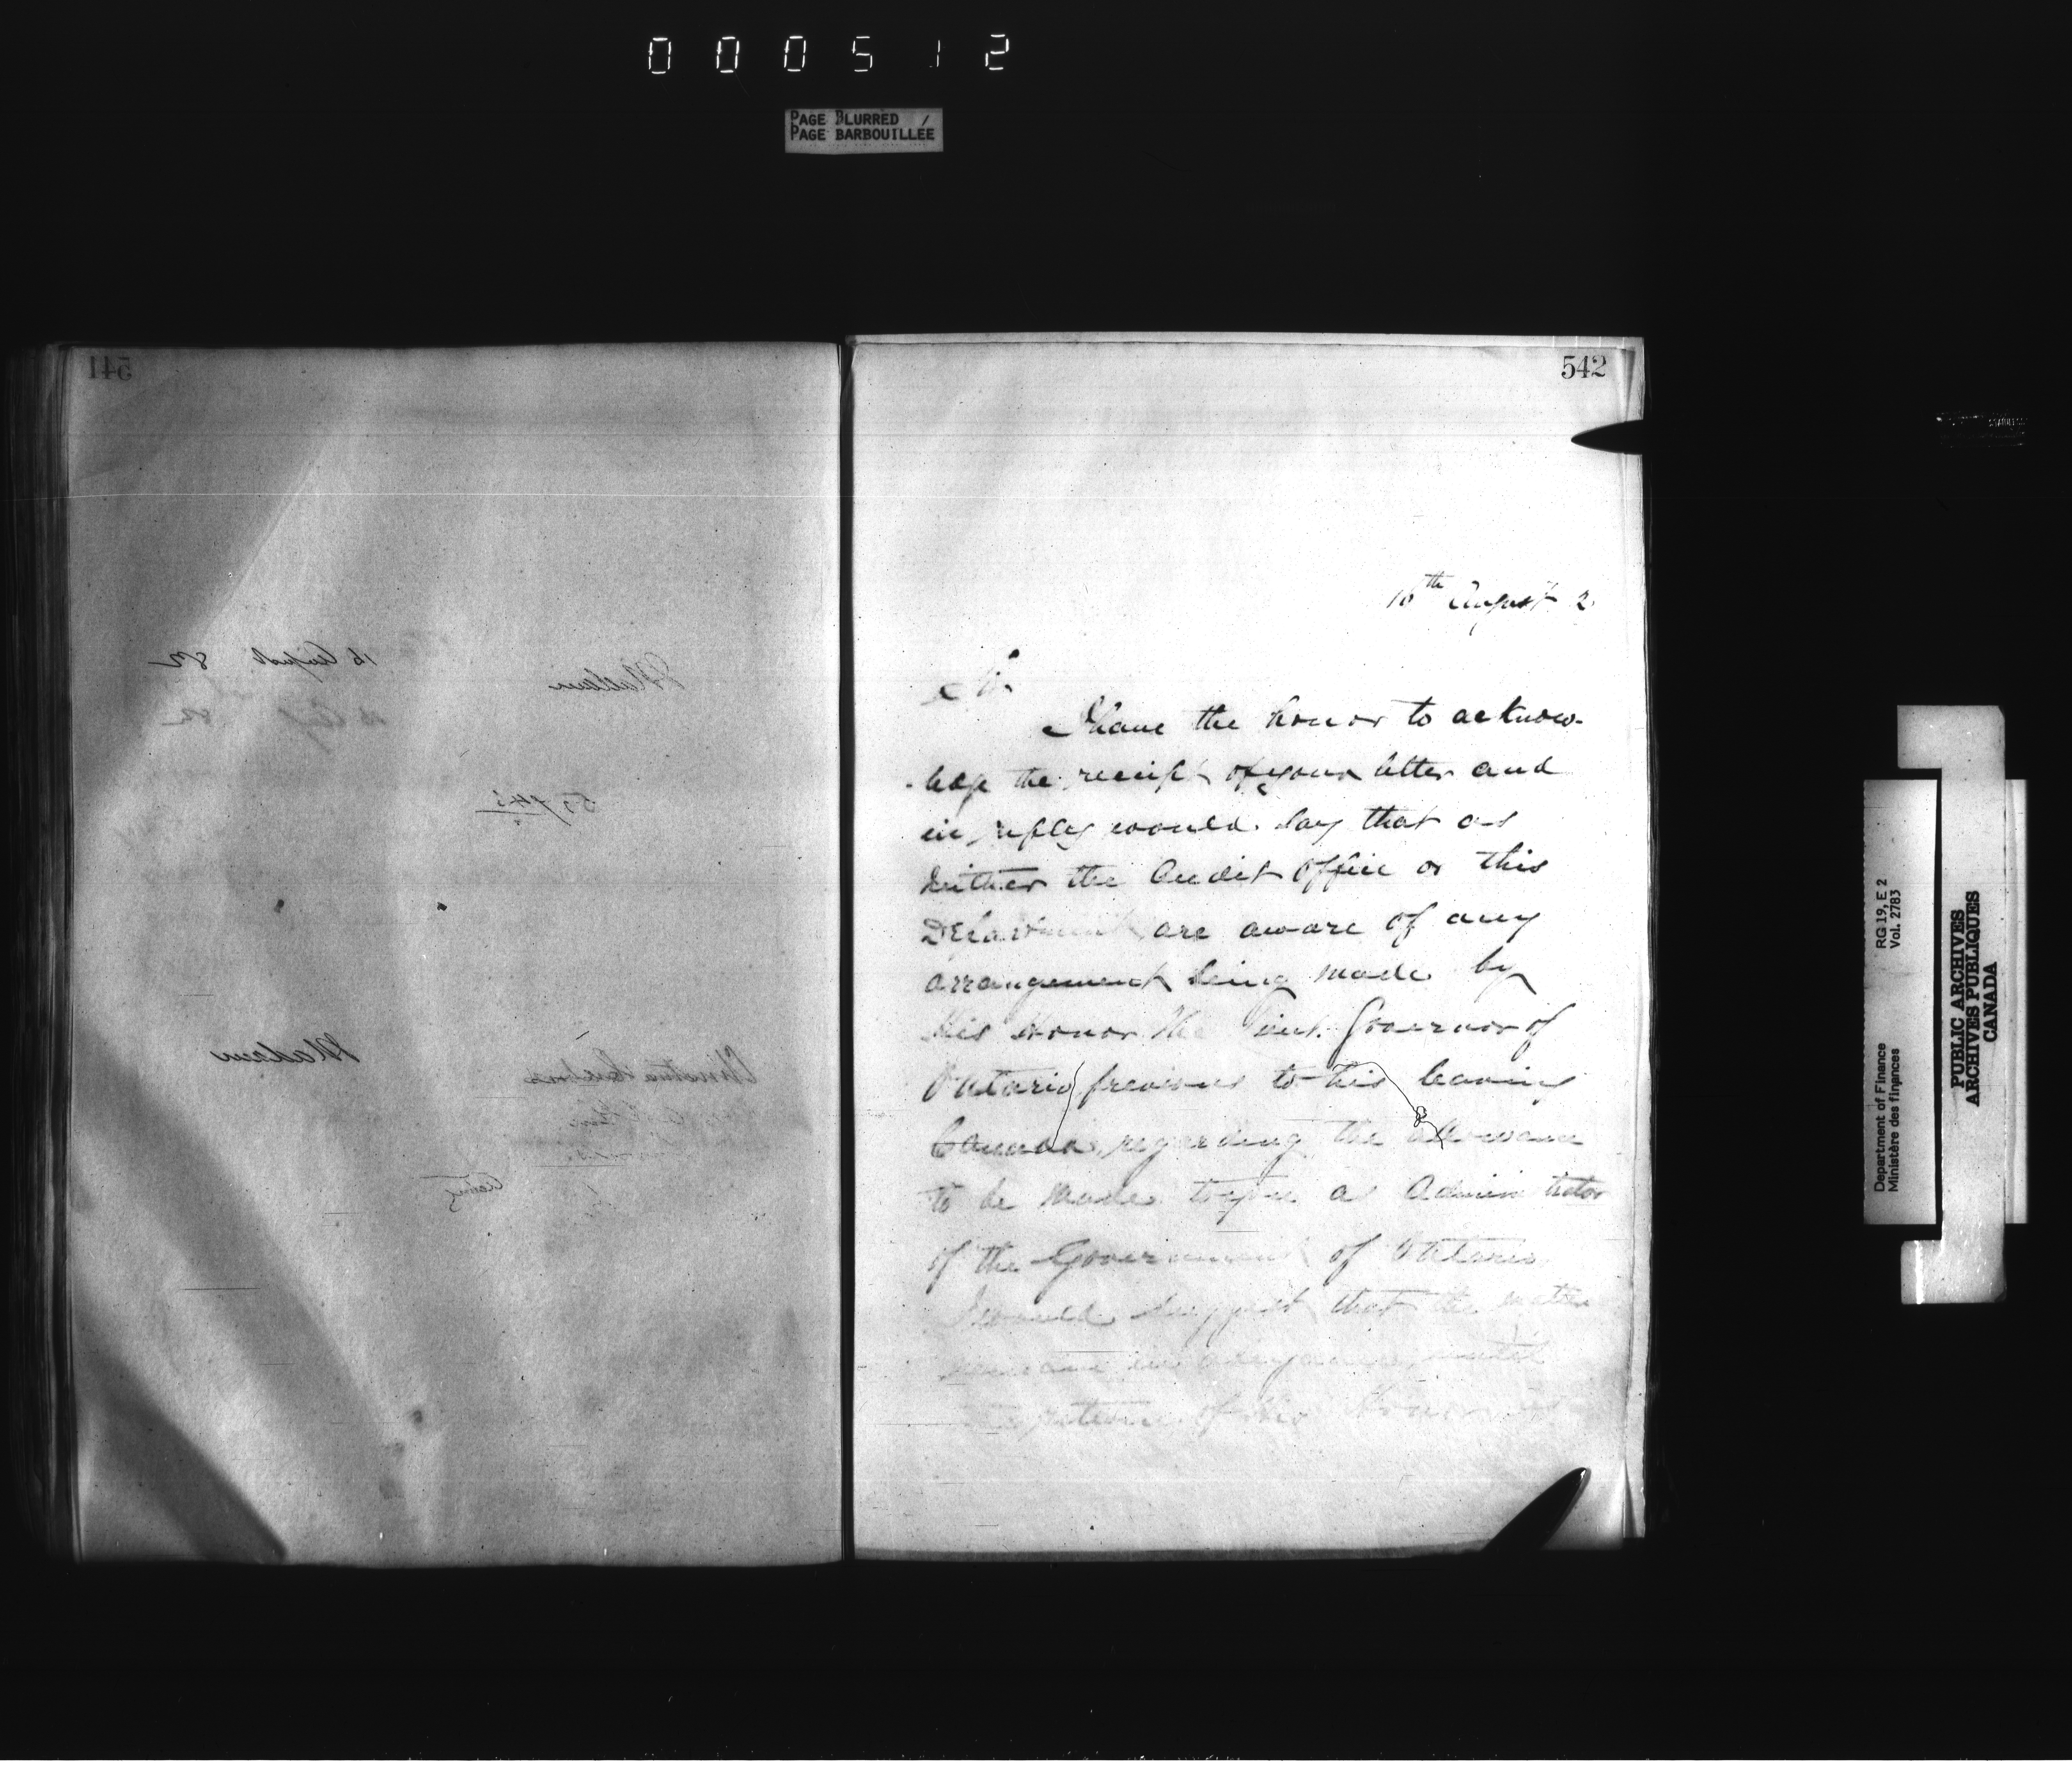 000512
PAGE BLURRED /
PAGE BARBOUILLÉE
541
16 August 82
Madam
16 Aug 82
Madam
542
16th August 2
Sir
I have the honor to acknow-
-ledge the receipt of your letter and
in reply would say that as
neither the Audit Office or this
Department are aware of any
arrangement being made by
His Honor the Lieut. Governor of
Ontario previous to his leaving
Canada, regarding the allowance
to be made to you as Administrator
of the Government of Ontario
I would suggest that the matter
remain in abeyance until
the return of His Honor
Department of Finance
Ministère des finances
RG 19, E 2
Vol. 2783
PUBLIC ARCHIVES
ARCHIVES PUBLIQUES
CANADA